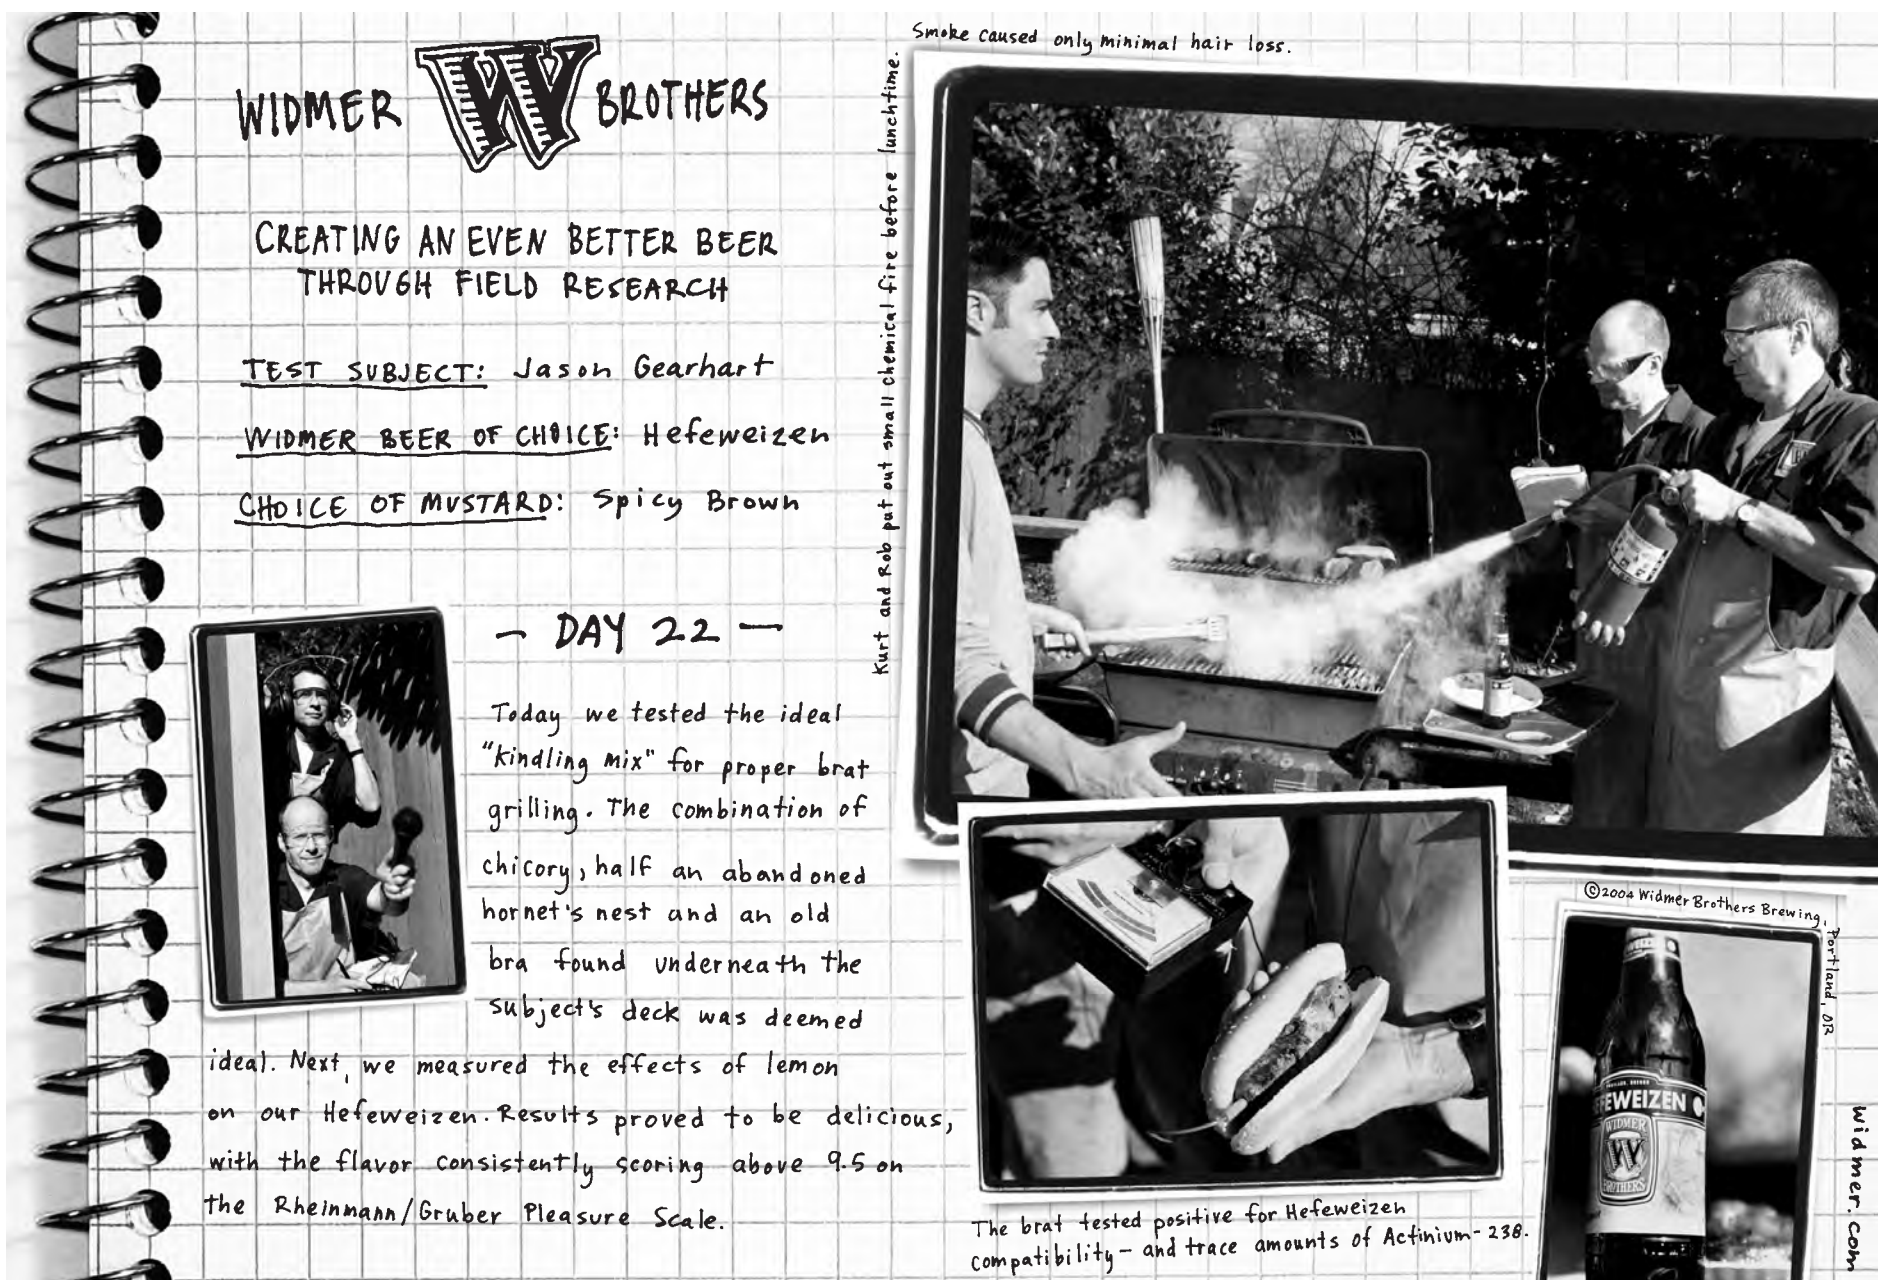 WIDMER W BROTHERS
CREATING AN EVEN BETTER BEER
THROUGH FIELD RESEARCH
TEST SUBJECT: Jason Gearhart
WIDMER BEER OF CHOICE: Hefeweizen
CHOICE OF MUSTARD: Spicy Brown
- DAY 22 -
Today we tested the ideal
"kindling mix" for proper brat
grilling. The combination of
chicory, half an abandoned
hornet's nest and an old
bra found underneath the
subject's deck was deemed
ideal. Next, we measured the effects of lemon
on our Hefeweizen. Results proved to be delicious,
with the flavor consistently scoring above 9.5 on
the Rheinmann/Gruber Pleasure Scale.
Kurt and Rob put out small chemical fire before lunchtime.
Smoke caused only minimal hair loss.
The brat tested positive for Hefeweizen
compatibility - and trace amounts of Actinium-238.
©2004 Widmer Brothers Brewing,
Portland, OR
EFEWEIZEN
WIDMER
W
BROTHERS
widmer.com